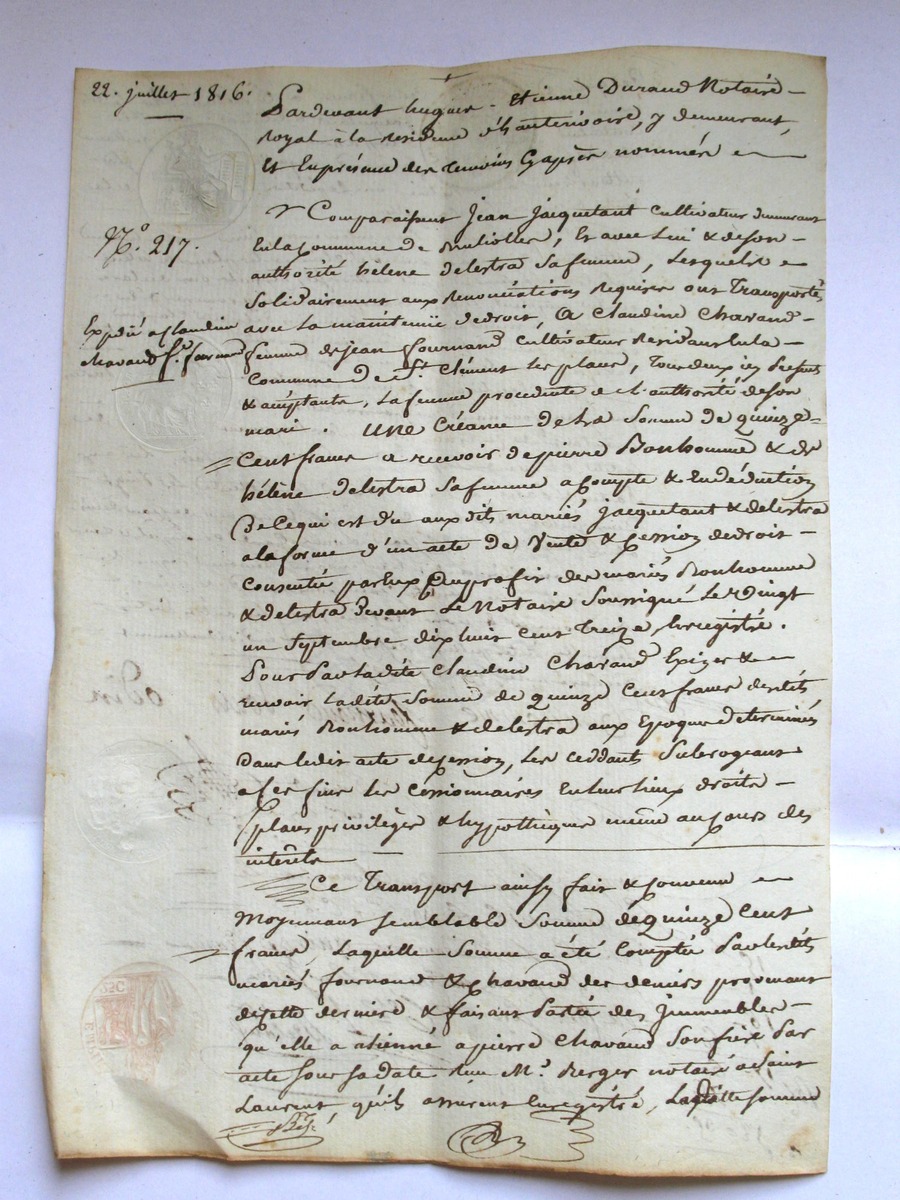 22. juillet 1816.
Pardevant hugues - Etienne Durand Notaire
Royal à la residence d'hauterivoire, y demeurant,
Et En présence des temoins Cy après nommés
N.° 217.
Comparaissent Jean Jacquetant Cultivateur demeurant
En la Commune de , Et avec lui & de son
authorité hélène delestra sa femme, Lesquels
Solidairement aux Renonciations Requises ont Transporté
Expédié a Claudine
chavand f.e fournand
avec La maintenüe de droit, A Claudine Chavand
femme de jean fournand Cultivateur Residans En la
Commune de S.t Clément les places, tous deux icy présents
& acceptants, La femme procedente de L'authorité de son
mari. UNE Créance de La Somme de quinze
Cent francs a recevoir de pierre Bonhomme & de
hélène delestra Sa femme a Compte & En déduction
De Ce qui est du aux dits mariés jacquetant & delestra
a la forme d'un acte de Vente & Cession de droit
Consenti par Eux au profit des mariés Bonhomme
& delestra Devant Le Notaire Soussigné Le Vingt
un Septembre dix huit Cent Treize, Enregistré.
Pour Par La dite Claudine Chavand Exiger &
recevoir La dite Somme de quinze Cent francs desdits
mariés Bonhomme & delestra aux Epoques determinés
Dans le dit acte de Cession, Les Ceddants Subrogeant
a Ces fins les Cessionnaires En leur lieux droits
places privilèges & hypothèques même au Cours des
intérêts
Ce Transport ainsy fait & Convenu
Moyennant semblable Somme de quinze Cent
francs, Laquelle Somme a été Comptée Par les dits
mariés fournand & Chavand des deniers provenant
de Cette derniere & faisant Partie des Immeubles
qu'elle a aliénné a pierre Chavand Son frère Par
acte Sous Sa date reçu M.e Berger notaire a Saint
Laurent, qu'ils assurent Enregistré, Laquelle somme